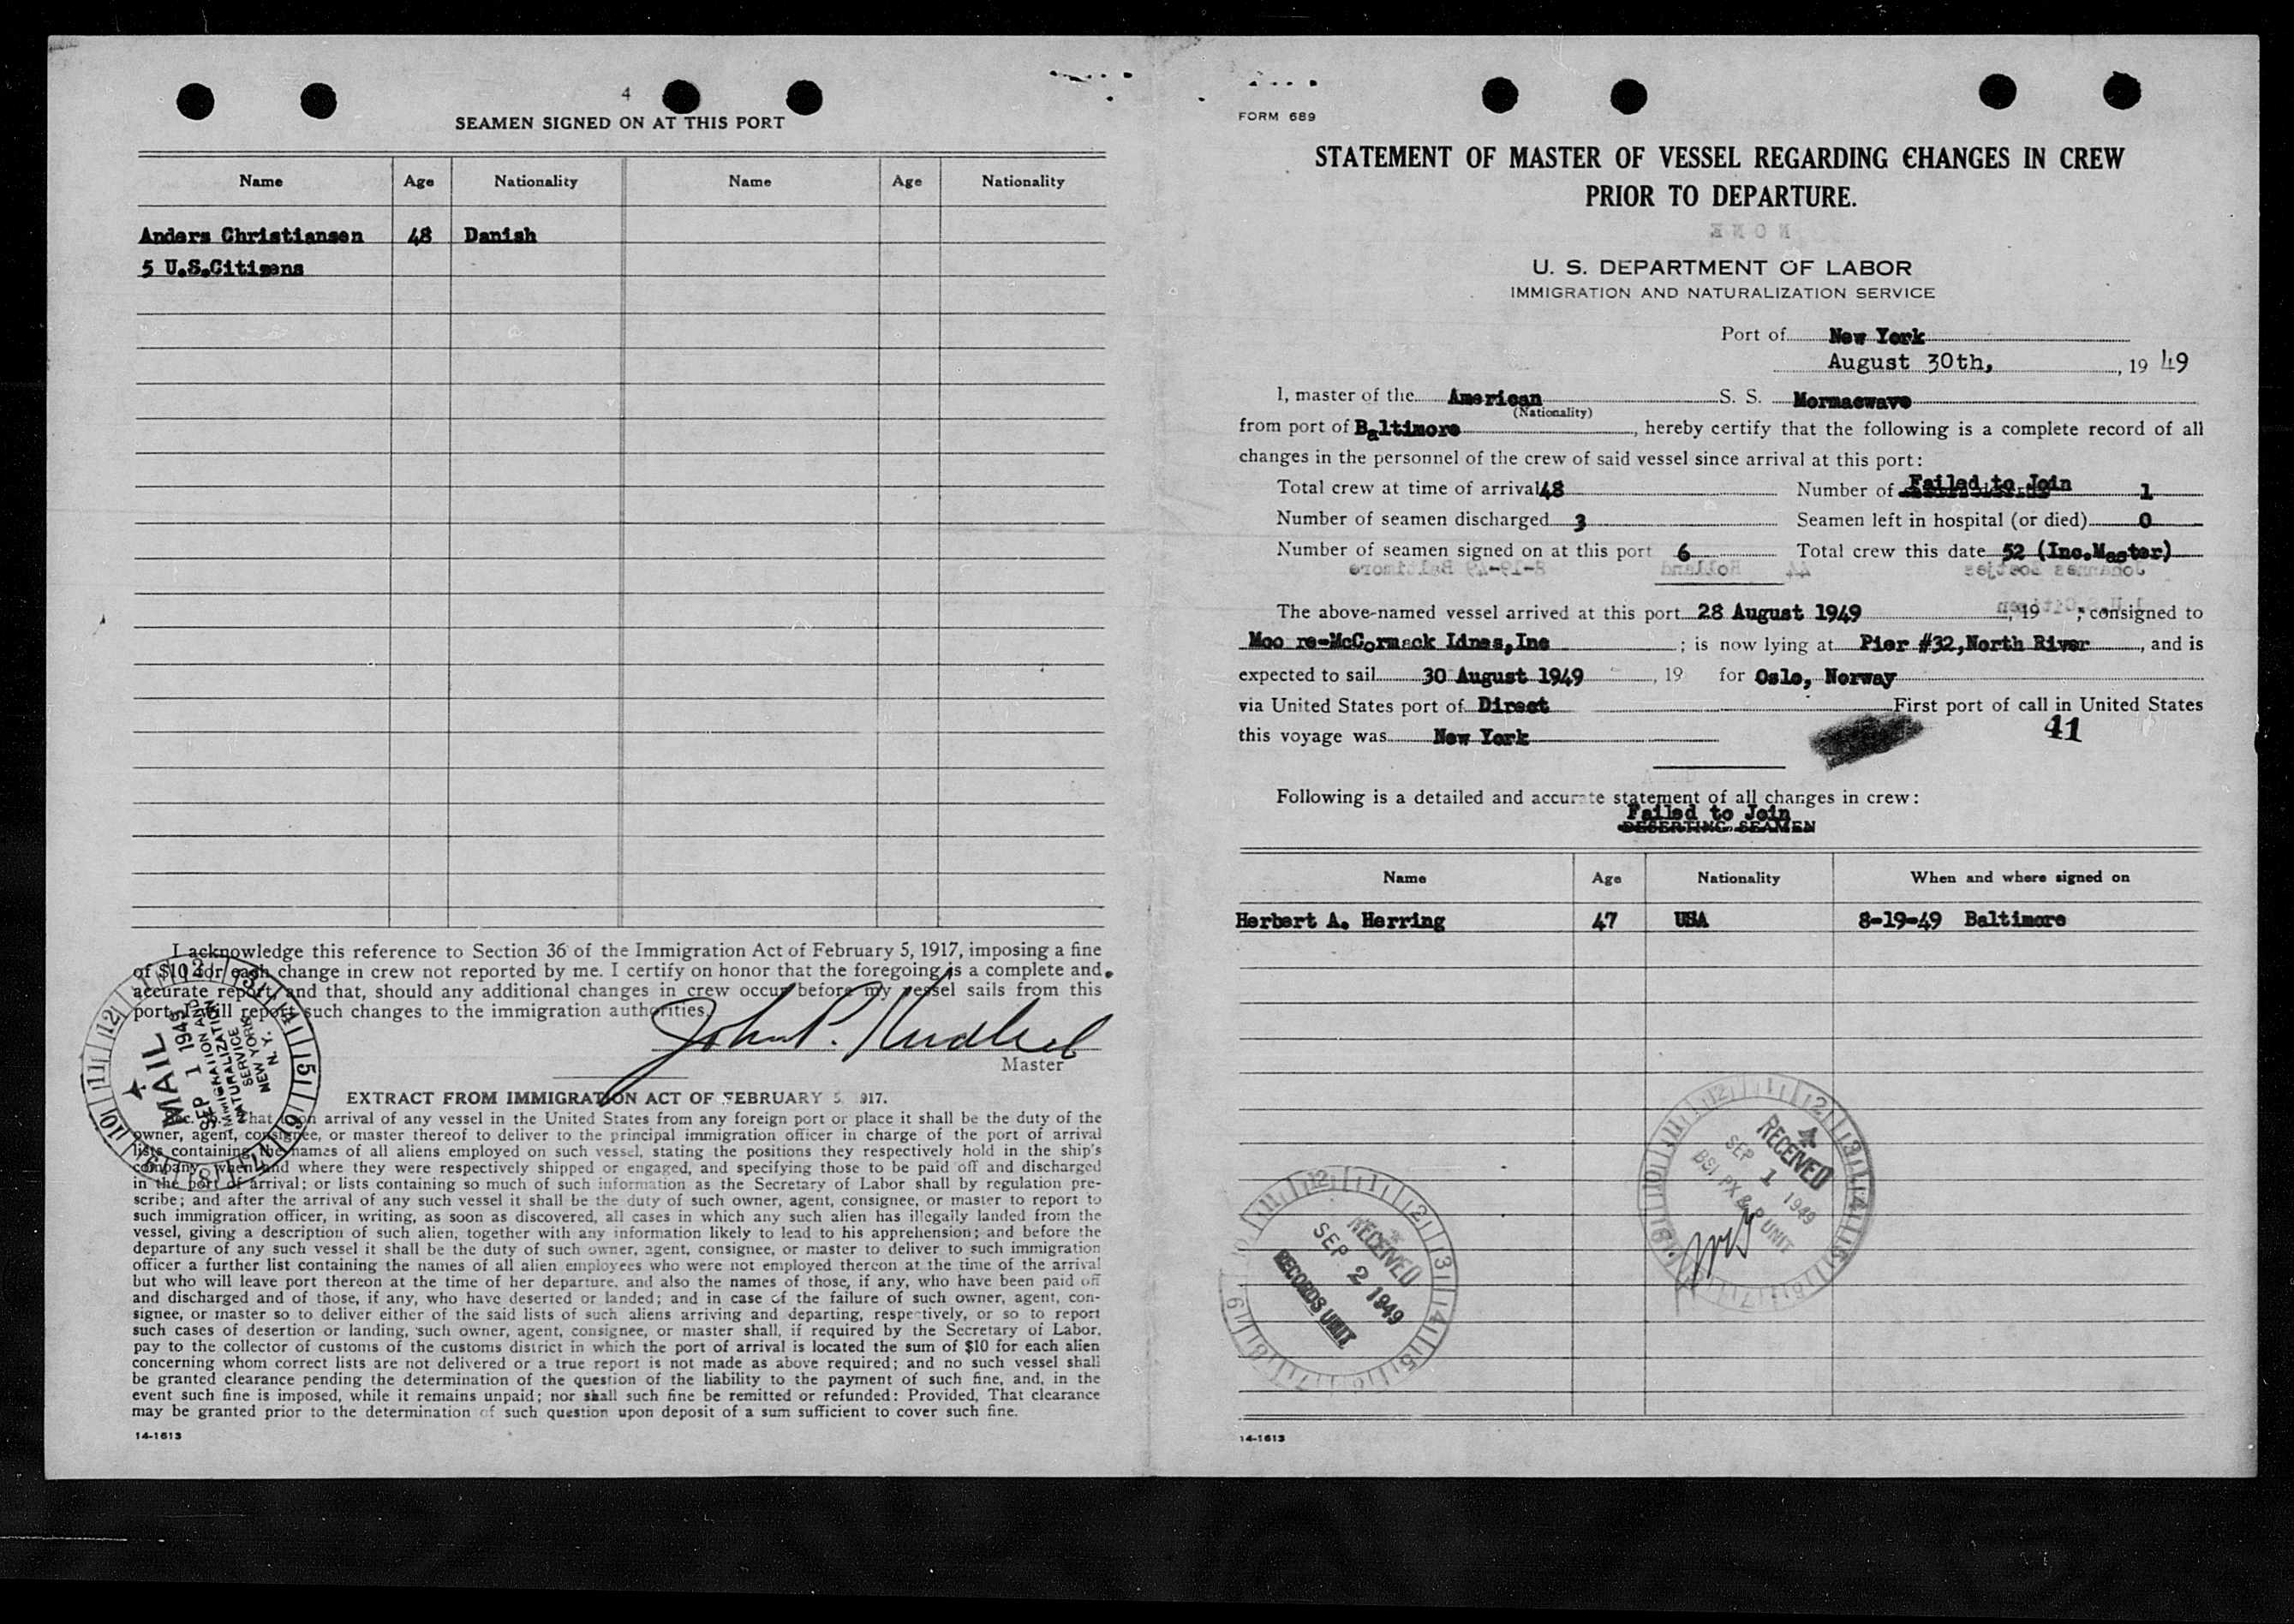 4
SEAMEN SIGNED ON AT THIS PORT
Name Age Nationality Name Age Nationality
Anders Christiansen 48 Danish
5 U.S.Citizens
I acknowledge this reference to Section 36 of the Immigration Act of February 5, 1917, imposing a fine
of $10 for each change in crew not reported by me. I certify on honor that the foregoing is a complete and
accurate report, and that, should any additional changes in crew occur before my vessel sails from this
port, I will report such changes to the immigration authorities.
John P.
Master
MAIL
SEP 1 1949
IMMIGRATION AND
NATURALIZATION
SERVICE
NEW YORK
N. Y.
EXTRACT FROM IMMIGRATION ACT OF FEBRUARY 5, 1917.
That upon arrival of any vessel in the United States from any foreign port or place it shall be the duty of the
owner, agent, consignee, or master thereof to deliver to the principal immigration officer in charge of the port of arrival
lists containing the names of all aliens employed on such vessel, stating the positions they respectively hold in the ship's
company, when and where they were respectively shipped or engaged, and specifying those to be paid off and discharged
in the port of arrival; or lists containing so much of such information as the Secretary of Labor shall by regulation pre-
scribe; and after the arrival of any such vessel it shall be the duty of such owner, agent, consignee, or master to report to
such immigration officer, in writing, as soon as discovered, all cases in which any such alien has illegally landed from the
vessel, giving a description of such alien, together with any information likely to lead to his apprehension; and before the
departure of any such vessel it shall be the duty of such owner, agent, consignee, or master to deliver to such immigration
officer a further list containing the names of all alien employees who were not employed thereon at the time of the arrival
but who will leave port thereon at the time of her departure, and also the names of those, if any, who have been paid off
and discharged and of those, if any, who have deserted or landed; and in case of the failure of such owner, agent, con-
signee, or master so to deliver either of the said lists of such aliens arriving and departing, respectively, or so to report
such cases of desertion or landing, such owner, agent, consignee, or master shall, if required by the Secretary of Labor,
pay to the collector of customs of the customs district in which the port of arrival is located the sum of $10 for each alien
concerning whom correct lists are not delivered or a true report is not made as above required; and no such vessel shall
be granted clearance pending the determination of the question of the liability to the payment of such fine, and, in the
event such fine is imposed, while it remains unpaid; nor shall such fine be remitted or refunded: Provided, That clearance
may be granted prior to the determination of such question upon deposit of a sum sufficient to cover such fine.
14-1613
FORM 689
STATEMENT OF MASTER OF VESSEL REGARDING CHANGES IN CREW
PRIOR TO DEPARTURE.
NONE
U. S. DEPARTMENT OF LABOR
IMMIGRATION AND NATURALIZATION SERVICE
Port of New York
August 30th, , 19 49
I, master of the American S. S. Mormacwave
(Nationality)
from port of Baltimore , hereby certify that the following is a complete record of all
changes in the personnel of the crew of said vessel since arrival at this port:
Total crew at time of arrival 48 Number of Failed to Join 1
Number of seamen discharged 3 Seamen left in hospital (or died) 0
Number of seamen signed on at this port 6 Total crew this date 52 (Inc.Master)
The above-named vessel arrived at this port 28 August 1949 , 19 ; consigned to
Moo re-McCormack Lines,Inc ; is now lying at Pier #32,North River , and is
expected to sail 30 August 1949 , 19 for Oslo, Norway
via United States port of Direct First port of call in United States
this voyage was New York 41
Following is a detailed and accurate statement of all changes in crew:
Failed to Join
DESERTING SEAMEN
Name Age Nationality When and where signed on
Herbert A. Herring 47 USA 8-19-49 Baltimore
RECEIVED
SEP 1 1949
BSI, PX & P UNIT
RECEIVED
SEP 2 1949
RECORDS UNIT
14-1613